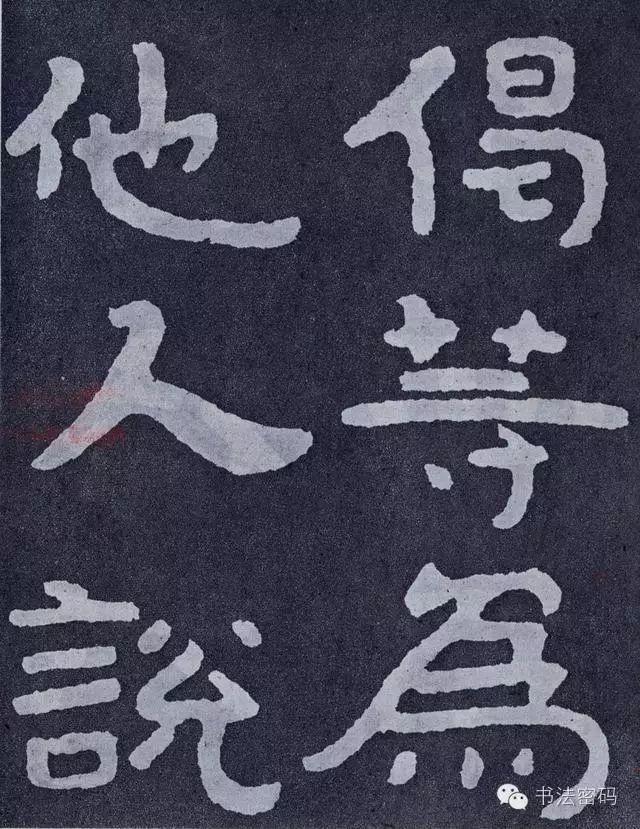 偈等為
他人說
书法密码